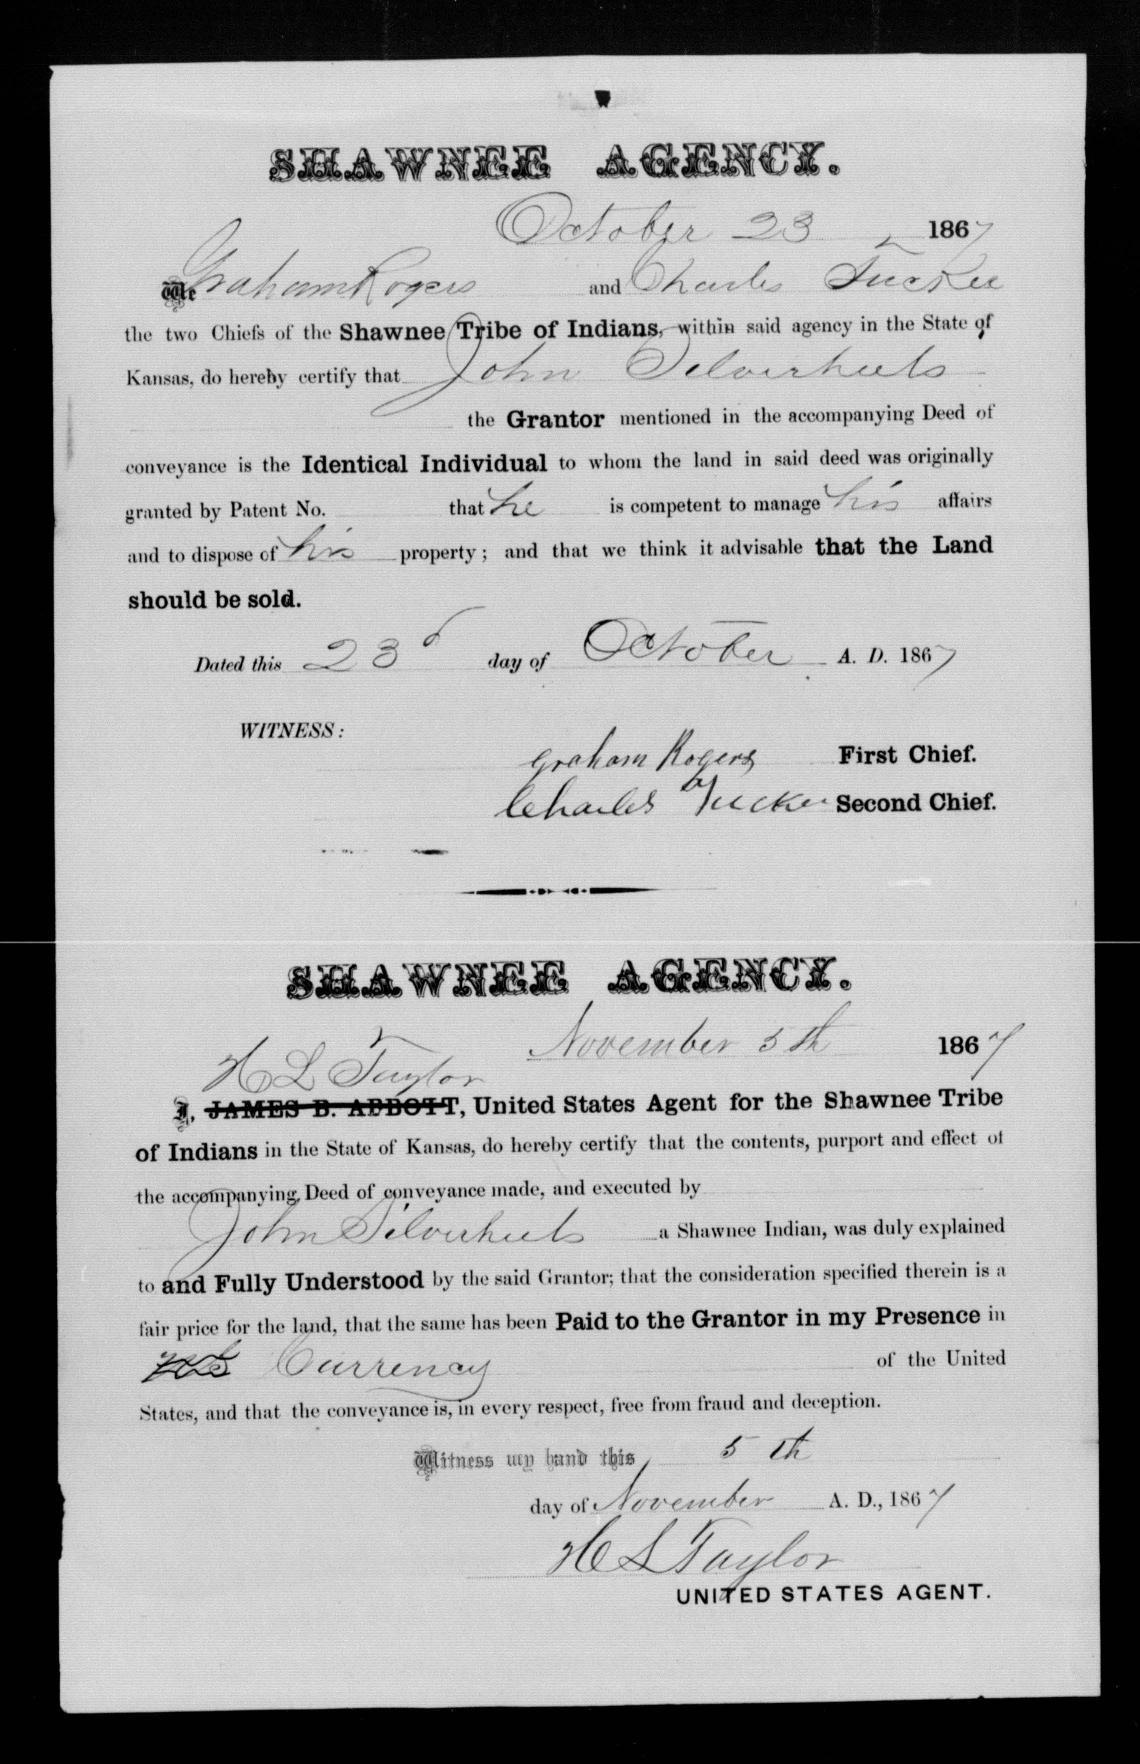 SHAWNEE AGENCY.
October 23 1867
We Graham Rogers and Charles Tucker
the two Chiefs of the Shawnee Tribe of Indians, within said agency in the State of
Kansas, do hereby certify that John Silverheels
the Grantor mentioned in the accompanying Deed of
conveyance is the Identical Individual to whom the land in said deed was originally
granted by Patent No. that he is competent to manage his affairs
and to dispose of his property; and that we think it advisable that the Land
should be sold.
Dated this 23d day of October A. D. 1867
WITNESS:
Graham Rogers First Chief.
Charles Tucker Second Chief.
SHAWNEE AGENCY.
November 5th 1867
H L Taylor
I, JAMES B. ABBOTT, United States Agent for the Shawnee Tribe
of Indians in the State of Kansas, do hereby certify that the contents, purport and effect of
the accompanying Deed of conveyance made, and executed by
John Silverheels a Shawnee Indian, was duly explained
to and Fully Understood by the said Grantor; that the consideration specified therein is a
fair price for the land, that the same has been Paid to the Grantor in my Presence in
Currency of the United
States, and that the conveyance is, in every respect, free from fraud and deception.
Witness my hand this 5th
day of November A. D., 1867
H L Taylor
UNITED STATES AGENT.